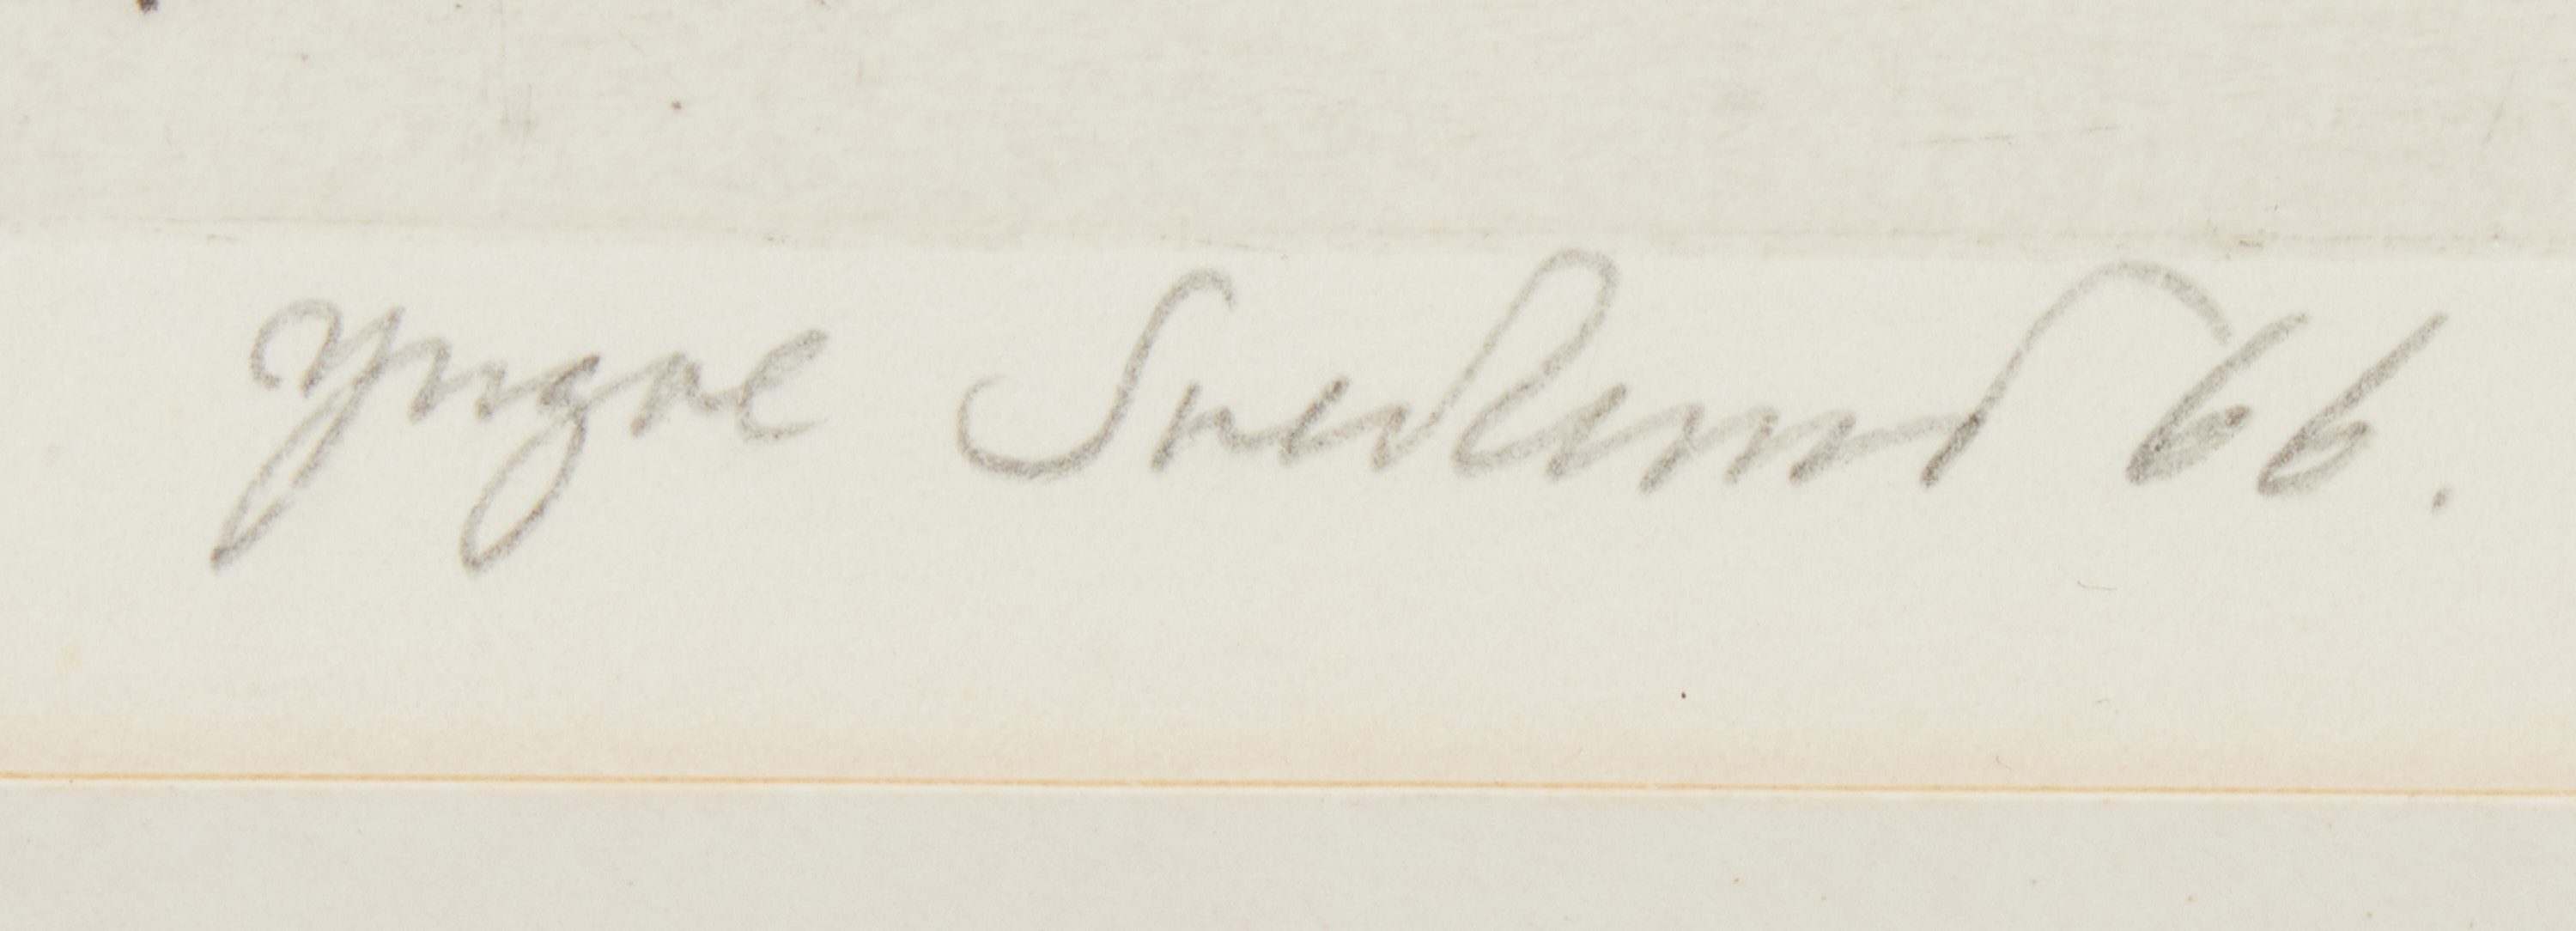 Yngve Svedlund 66.